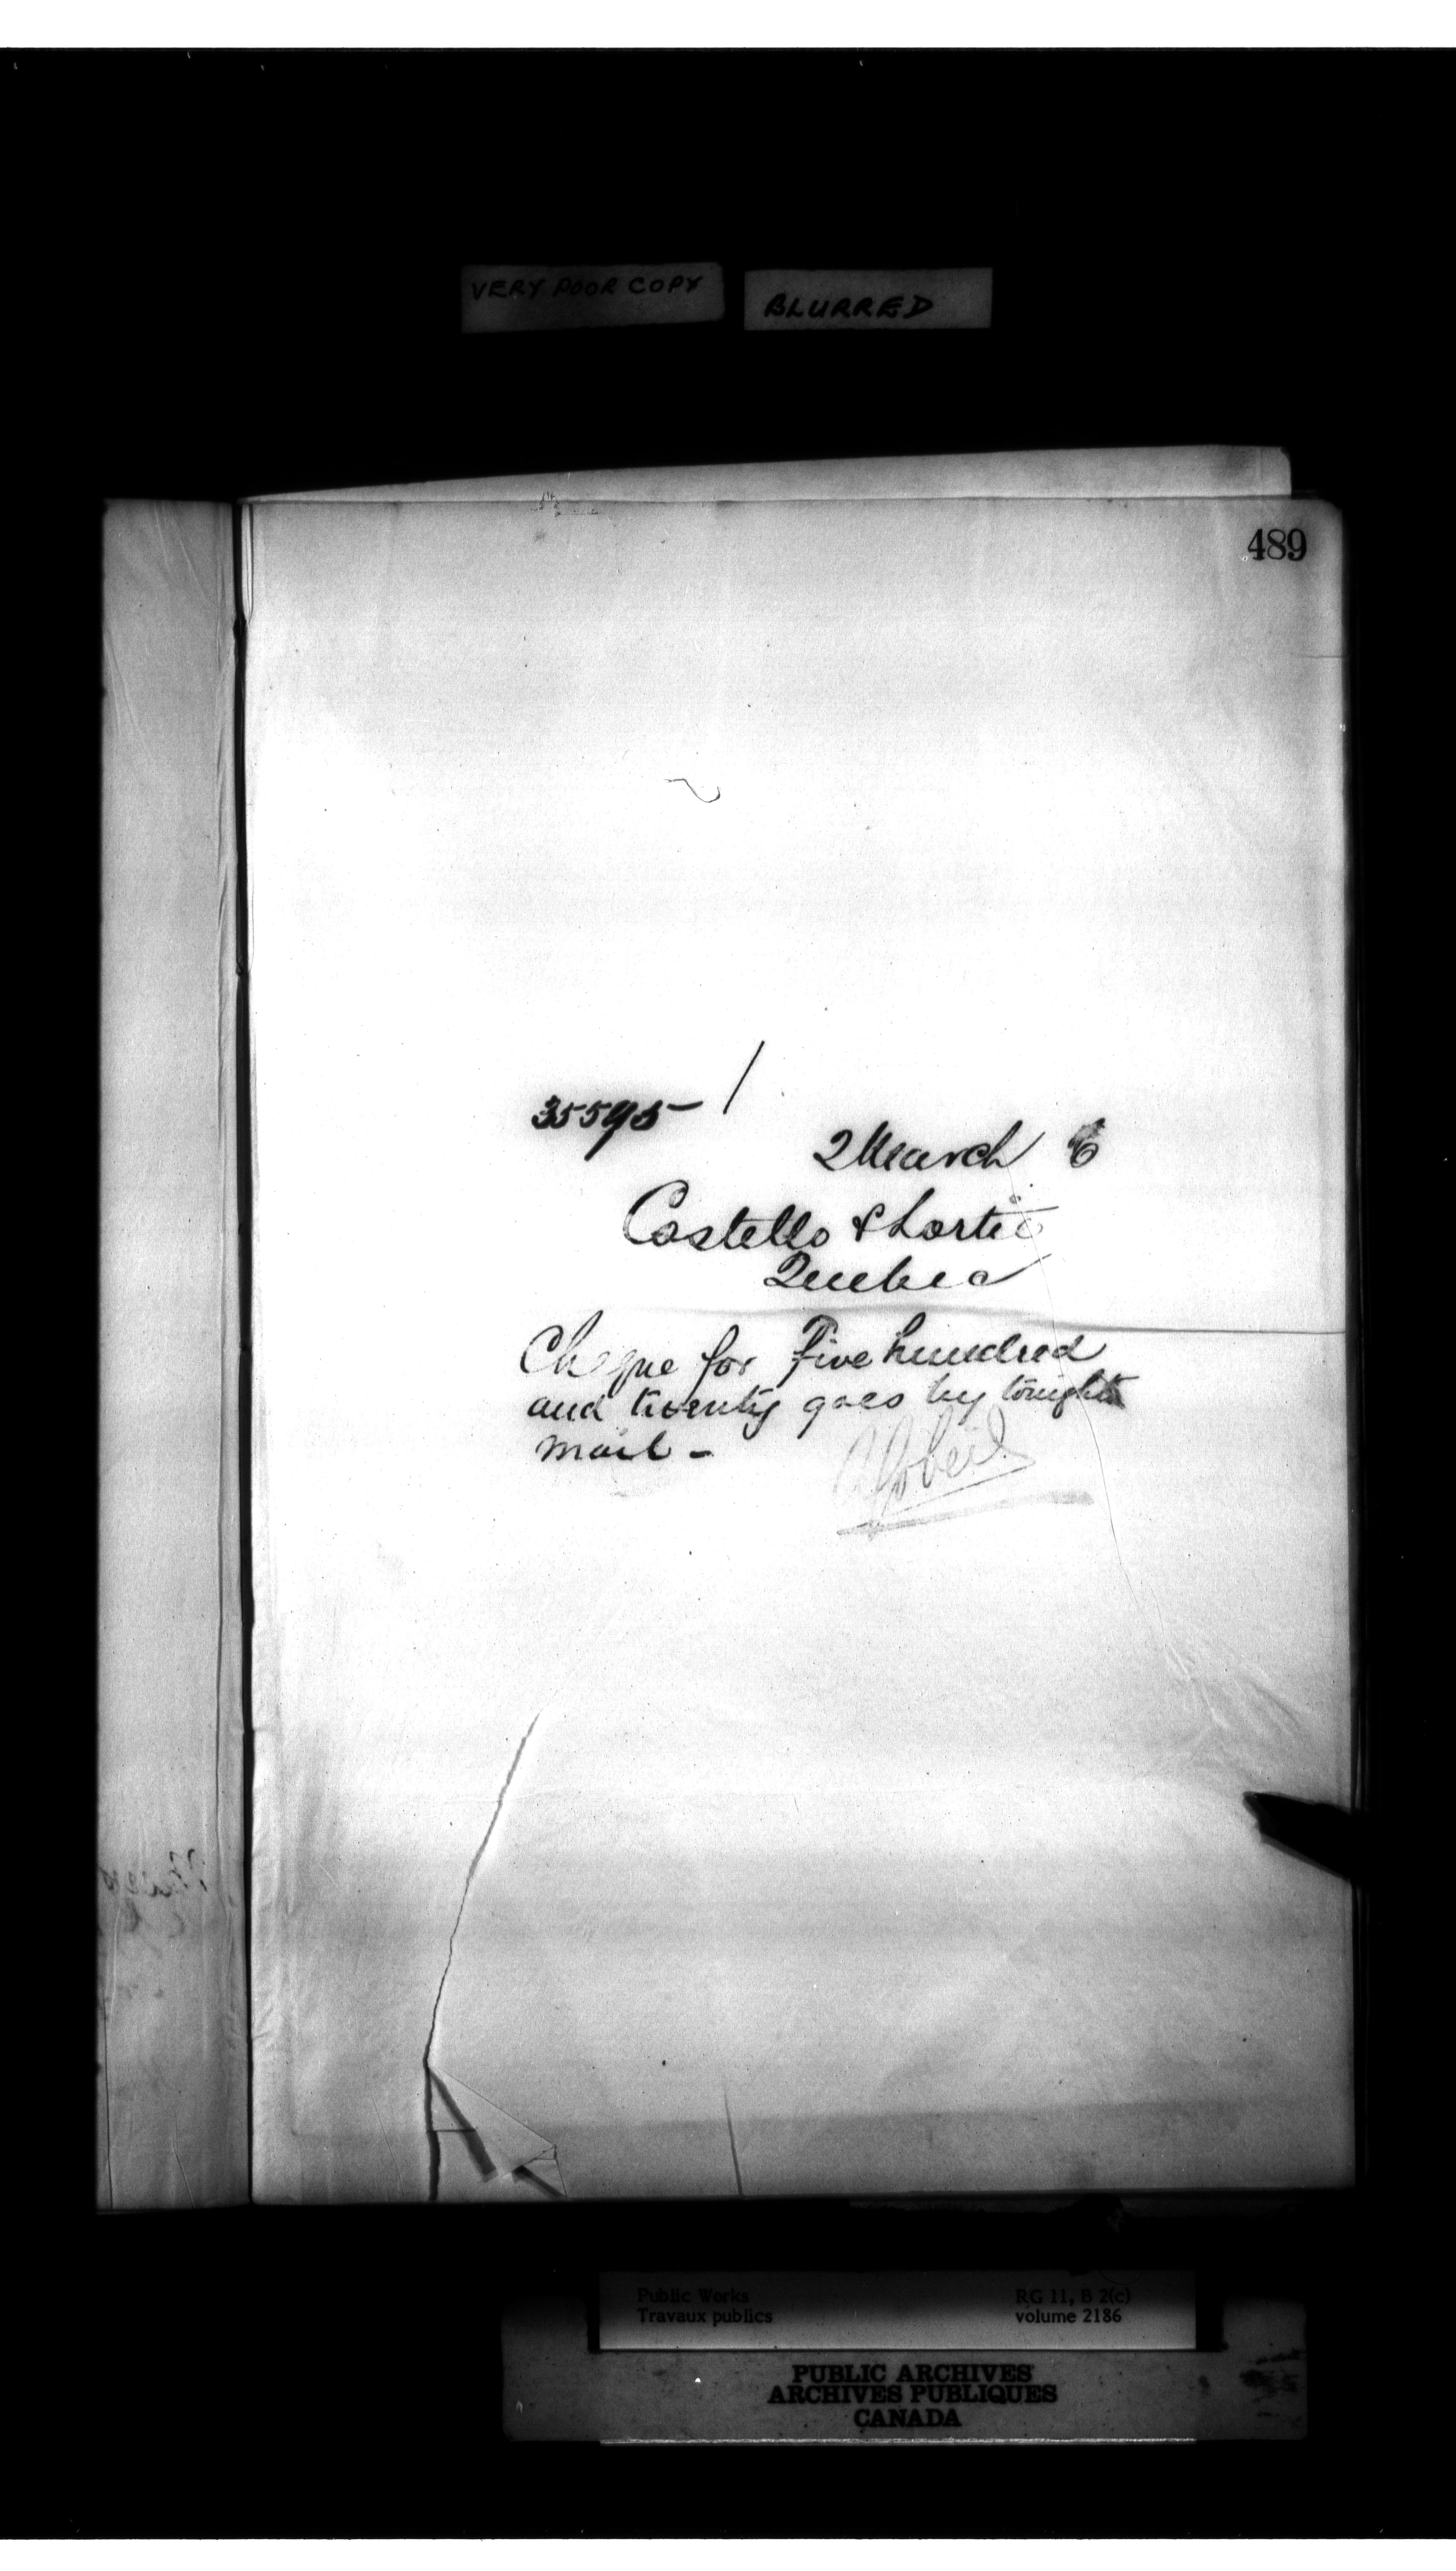 VERY POOR COPY BLURRED
489
35595 /
2 March 6
Costello & Lortie
Quebec
Cheque for five hundred
and twenty goes by tonights
mail -
A Gobeil
Public Works RG 11, B 2(c)
Travaux publics volume 2186
PUBLIC ARCHIVES
ARCHIVES PUBLIQUES
CANADA